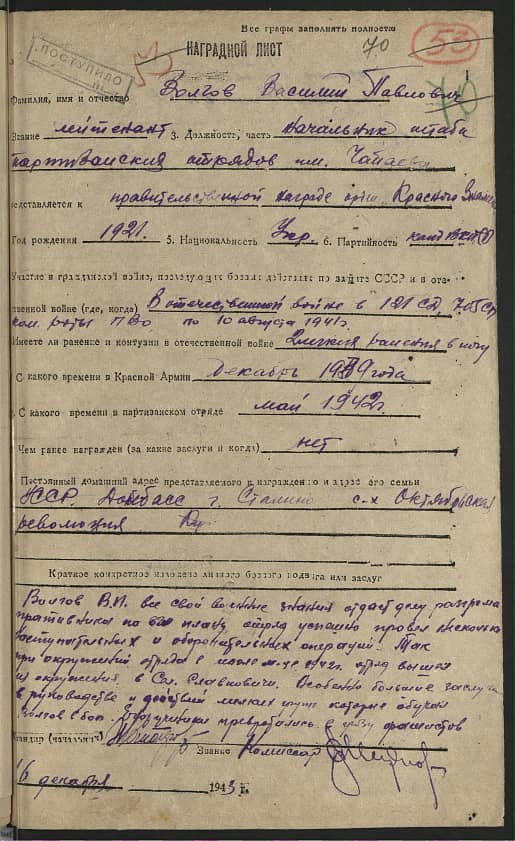 Все графы заполнять полностью
70
53
НАГРАДНОЙ ЛИСТ
ПОСТУПИЛО
1
70
Фамилия, имя и отчество Волгов Василий Павлович
Звание лейтенант 3. Должность, часть начальник штаба
партизанский отрядов им. Чапаева
Представляется к правительственной награде орден Красного Знамени
Год рождения 1921г. 5. Национальность Укр. 6. Партийность канд ВКП(б)
Участие в гражданской войне, последующих боевых действиях по защите СССР и в оте-
чественной войне (где, когда) В отечественной войне в 121 СД, 705 СП
ком. роты ПВО по 10 августа 1941г.
Имеете ли ранение и контузии в отечественной войне ранения в ногу
С какого времени в Красной Армии Декабрь 1939 года
С какого времени в партизанском отряде май 1942г.
Чем ранее награжден (за какие заслуги и когда) нет
Постоянный домашний адрес представляемого к награждению и адрес его семьи
УССР. Донбасс г. Сталино с-х Октябрьская
революция
Краткое конкретное изложение личного боевого подвига или заслуг
Волгов В.П. все свой военные знания отдает делу разгрома
противника по его плану отряд успешно провел несколько
наступательных и оборонательных операций. Так
при окружений отряда в июле м-це 1942г. отряд вышел
из окружения в Сл. Особенно большие заслуги
в руководстве и действий мелких групп которые обучал
Волгов к бою. превратились в грозу фашистов
Командир (начальник)
Звание Комиссар
16 декабря 1943 г.